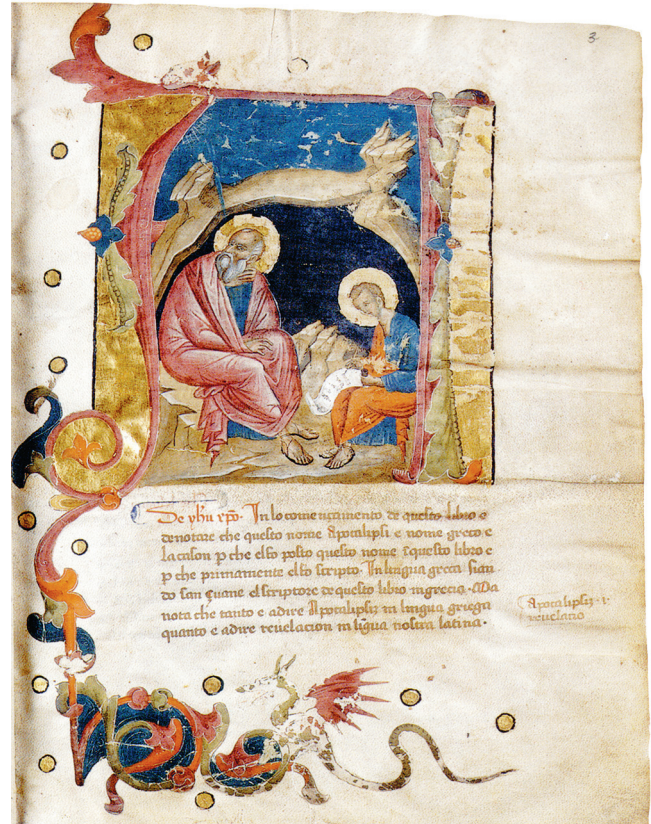 3
De yhu xpo. In lo comencamento de questo libro e
denotare che questo nome Apocalipsi e nome greco e
la cason p che elso posto questo nome i questo libro e
p che primamente elso scripto. In lingua greca sian
do san çuane el scriptore de questo libro in grecia. Ma
nota che tanto e adire Apocalipsis in lingua griega
quanto e adire reuelacion in ligua nostra latina.
Apocalipsis .i.
reuelatio